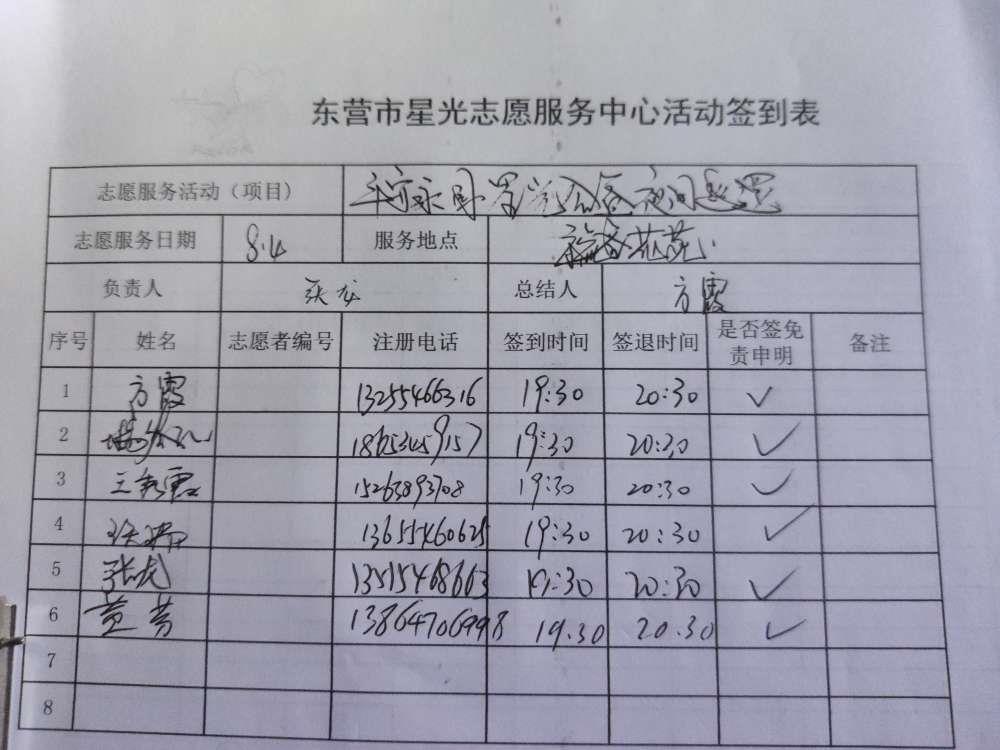 东营市星光志愿服务中心活动签到表
志愿服务活动（项目）
志愿服务日期 8.14 服务地点
负责人 张龙 总结人 方霞
序号 姓名 志愿者编号 注册电话 签到时间 签退时间 是否签免责申明 备注
1 方霞 13255466316 19:30 20:30 ✓
2 18653459157 19:30 20:30 ✓
3 15263893708 19:30 20:30 ✓
4 13655460625 19:30 20:30 ✓
5 张虎 13515468663 19:30 20:30 ✓
6 黄芳 13864706998 19.30 20.30 ✓
7
8